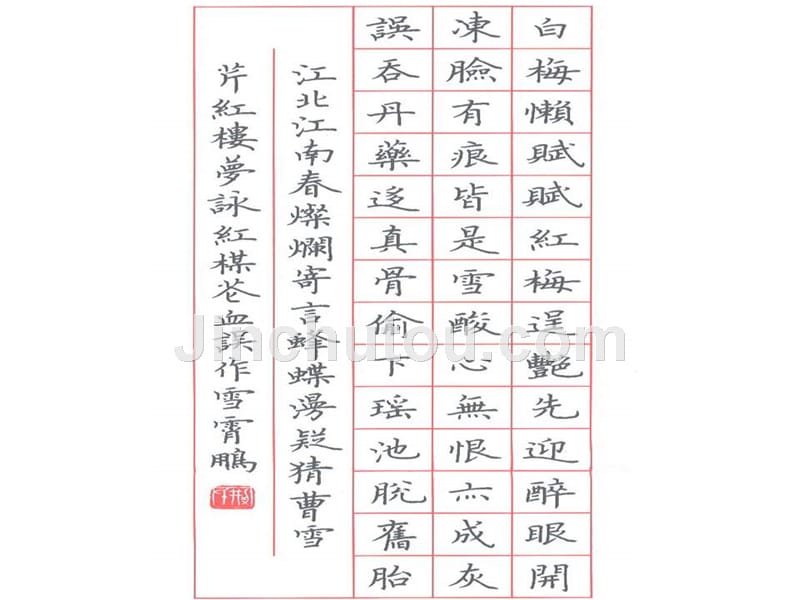 白梅懶賦賦紅梅逞艷先迎醉眼開
凍臉有痕皆是雪酸心無恨亦成灰
誤吞丹藥迻真骨偷下瑤池脫舊胎
江北江南春燦爛寄言蜂蝶漫疑猜曹雪
芹紅樓夢詠紅楳花血誤作雪霄鵬
Jinchutou.com